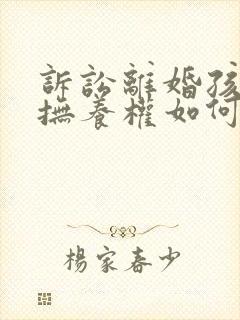 訴訟離婚孩
撫養權如何
楊家春少